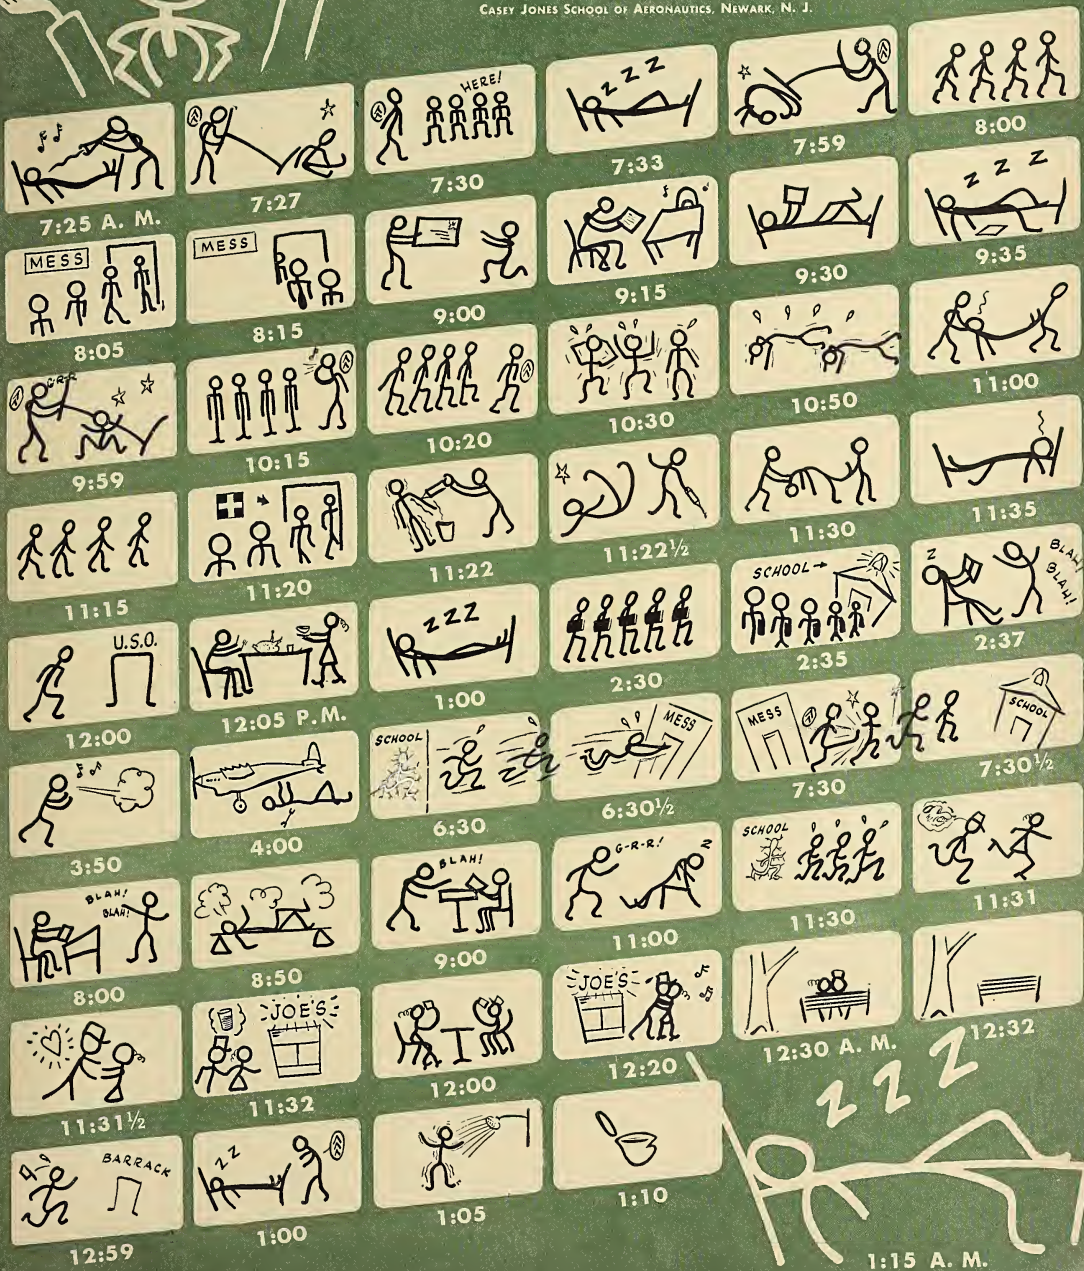 CASEY JONES SCHOOL OF AERONAUTICS, NEWARK, N. J.
7:25 A. M.
7:27
HERE!
7:30
Z Z Z
7:33
7:59
8:00
MESS
8:05
MESS
8:15
9:00
9:15
9:30
Z Z Z
9:35
GR-R
9:59
10:15
10:20
10:30
10:50
11:00
11:15
11:20
11:22
11:22½
11:30
11:35
U.S.O.
12:00
12:05 P.M.
Z Z Z
1:00
2:30
SCHOOL
2:35
Z
BLAH!
BLAH!
2:37
3:50
4:00
SCHOOL
6:30
MESS
6:30½
MESS
7:30
SCHOOL
7:30½
BLAH!
BLAH!
8:00
8:50
BLAH!
9:00
G-R-R!
Z
11:00
SCHOOL
11:30
11:31
11:31½
JOE'S
11:32
12:00
JOE'S
12:20
12:30 A. M.
12:32
BARRACK
12:59
Z Z
1:00
1:05
1:10
Z Z Z
1:15 A. M.